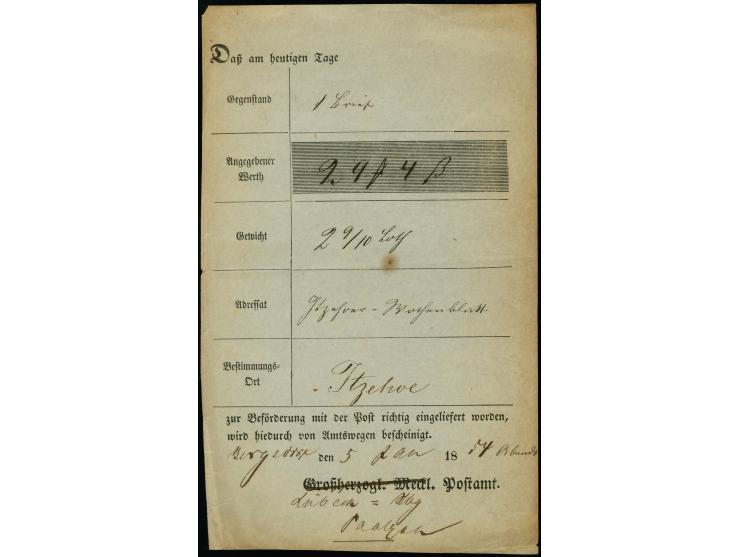 Daß am heutigen Tage
Gegenstand 1 Brief
Angegebener
Werth 4 ß
Gewicht 2 9/10 Loth
Adressat Itzehoer-Wochenblatt
Bestimmungs-
Ort Itzehoe
zur Beförderung mit der Post richtig eingeliefert worden,
wird hiedurch von Amtswegen bescheinigt.
Bergedorf den 5 Jan 18 54 Abends
Großherzogl. Meckl. Postamt.
Lübeck = Hbg